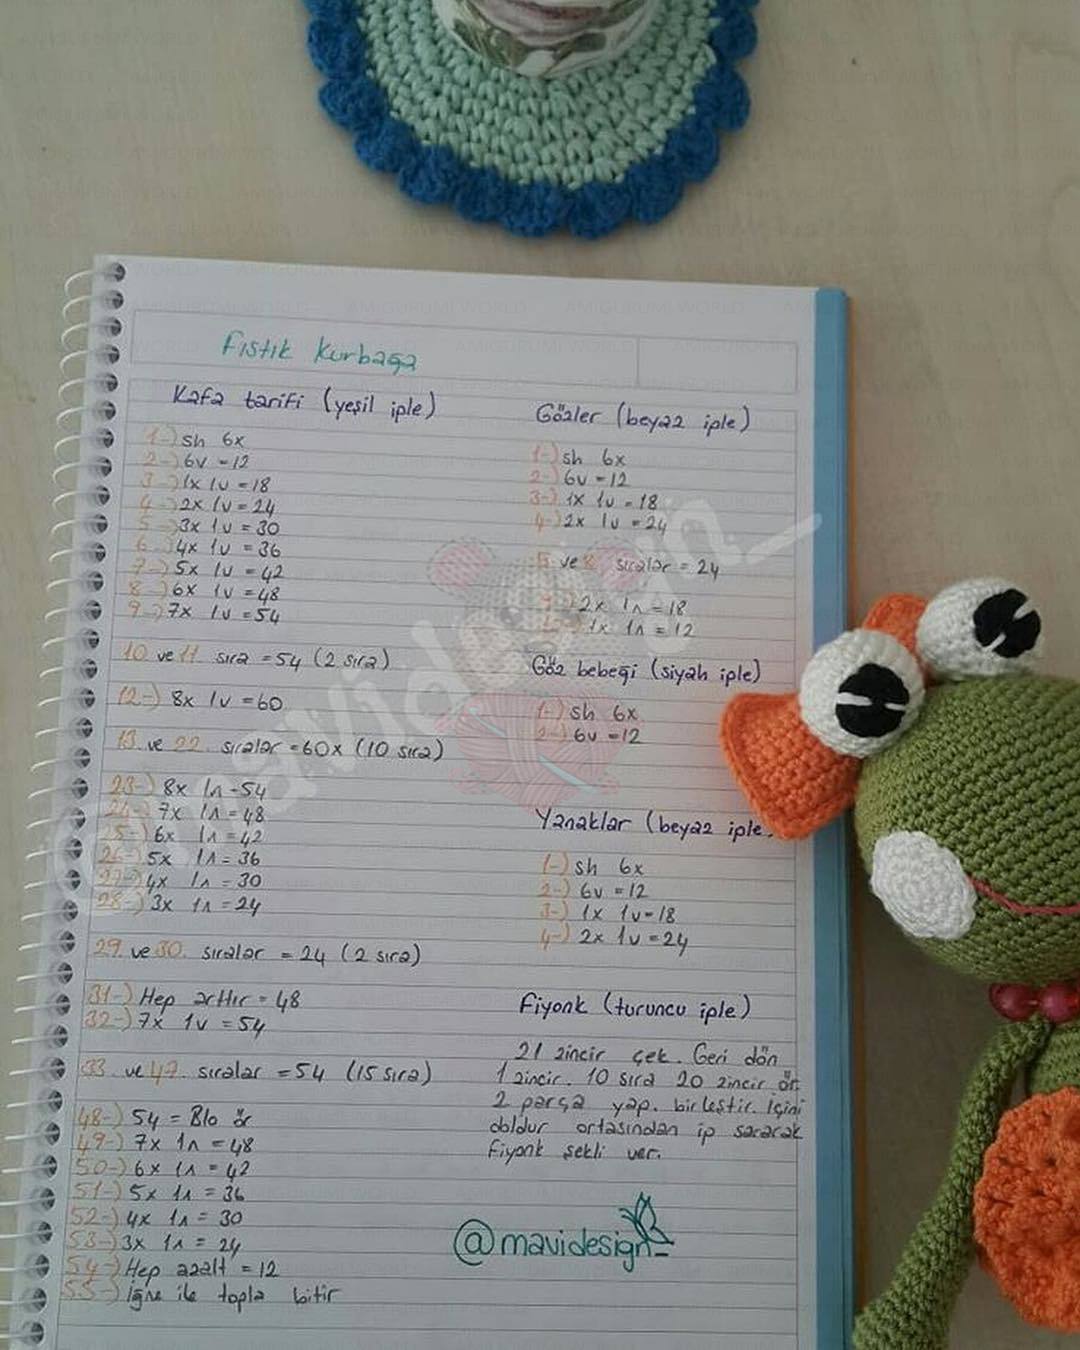 Fıstık Kurbağa
Kafa tarifi (yeşil iple)
1-) sh 6x
2-) 6v =12
3-) 1x 1v =18
4-) 2x 1v = 24
5-) 3x 1v = 30
6-) 4x 1v = 36
7-) 5x 1v = 42
8-) 6x 1v = 48
9-) 7x 1v = 54
10 ve 11. sıra = 54 (2 sıra)
12-) 8x 1v = 60
13 ve 22. sıralar = 60x (10 sıra)
23-) 8x 1ʌ -54
24-) 7x 1ʌ = 48
25-) 6x 1ʌ = 42
26-) 5x 1ʌ = 36
27-) 4x 1ʌ = 30
28-) 3x 1ʌ = 24
29. ve 30. sıralar = 24 (2 sıra)
31-) Hep arttır = 48
32-) 7x 1v = 54
33. ve 47. sıralar = 54 (15 sıra)
48-) 54 = Blo ör
49-) 7x 1ʌ = 48
50-) 6x 1ʌ = 42
51-) 5x 1ʌ = 36
52-) 4x 1ʌ = 30
53-) 3x 1ʌ = 24
54-) Hep azalt = 12
55-) İğne ile topla bitir
Gözler (beyaz iple)
1-) sh 6x
2-) 6v =12
3-) 1x 1v = 18
4-) 2x 1v = 24
5 ve 8. sıralar = 24
2x 1ʌ = 18
1x 1ʌ = 12
Göz bebeği (siyah iple)
1-) sh 6x
2-) 6v =12
Yanaklar (beyaz iple.
1-) sh 6x
2-) 6v =12
3-) 1x 1v = 18
4-) 2x 1v = 24
Fiyonk (turuncu iple)
21 zincir çek. Geri dön
1 zincir. 10 sıra 20 zincir ör.
2 parça yap. birleştir. İçini
doldur ortasından ip sararak
Fiyonk şekli ver.
@mavidesign_
mavidesign_
AMIGURUMI WORLD